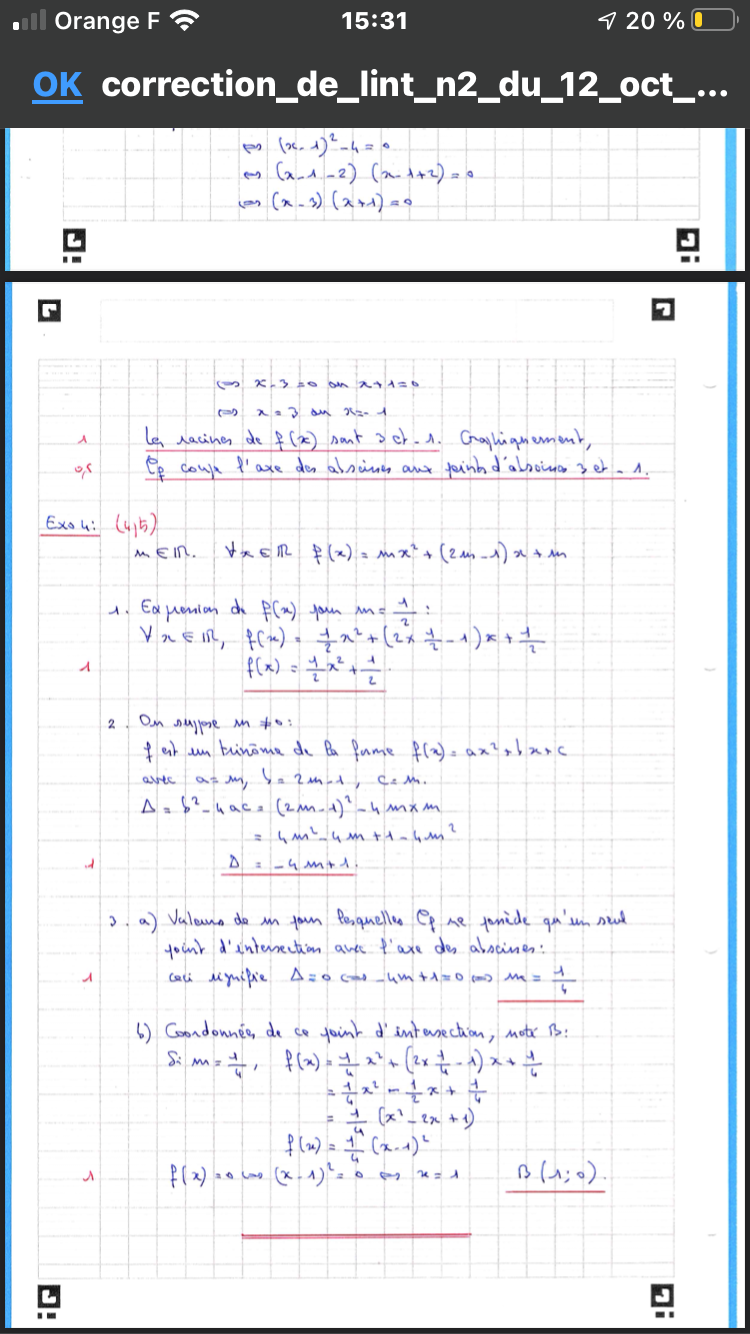 Orange F 15:31 20 %
OK correction_de_lint_n2_du_12_oct_...
⇔ (x-1)² - 4 = 0
⇔ (x-1-2) (x-1+2) = 0
⇔ (x-3) (x+1) = 0
⇔ x-3=0 ou x+1=0
⇔ x = 3 ou x=-1
1 Les racines de f(x) sont 3 et -1. Graphiquement,
0,5 Cf coupe l'axe des abscisses aux points d'abscisses 3 et -1.
Exo 4: (4,5)
m ∈ ℝ. ∀x ∈ ℝ f(x) = mx² + (2m-1)x + m
1. Expression de f(x) pour m = 1/2 :
∀x ∈ ℝ, f(x) = 1/2 x² + (2x 1/2 - 1)x + 1/2
1 f(x) = 1/2 x² + 1/2
2. On suppose m ≠ 0 :
f est un trinôme de la forme f(x) = ax² + bx + c
avec a = m, b = 2m-1, c = m.
Δ = b² - 4ac = (2m-1)² - 4m×m
= 4m² - 4m + 1 - 4m²
1 Δ = -4m+1.
3. a) Valeurs de m pour lesquelles Cf ne possède qu'un seul
point d'intersection avec l'axe des abscisses :
1 ceci signifie Δ=0 ⇔ -4m+1=0 ⇔ m = 1/4
b) Coordonnées de ce point d'intersection, noté B :
Si m = 1/4, f(x) = 1/4 x² + (2x 1/4 - 1)x + 1/4
= 1/4 x² - 1/2 x + 1/4
= 1/4 (x² - 2x + 1)
f(x) = 1/4 (x-1)²
1 f(x) = 0 ⇔ (x-1)² = 0 ⇔ x = 1 B (1;0).